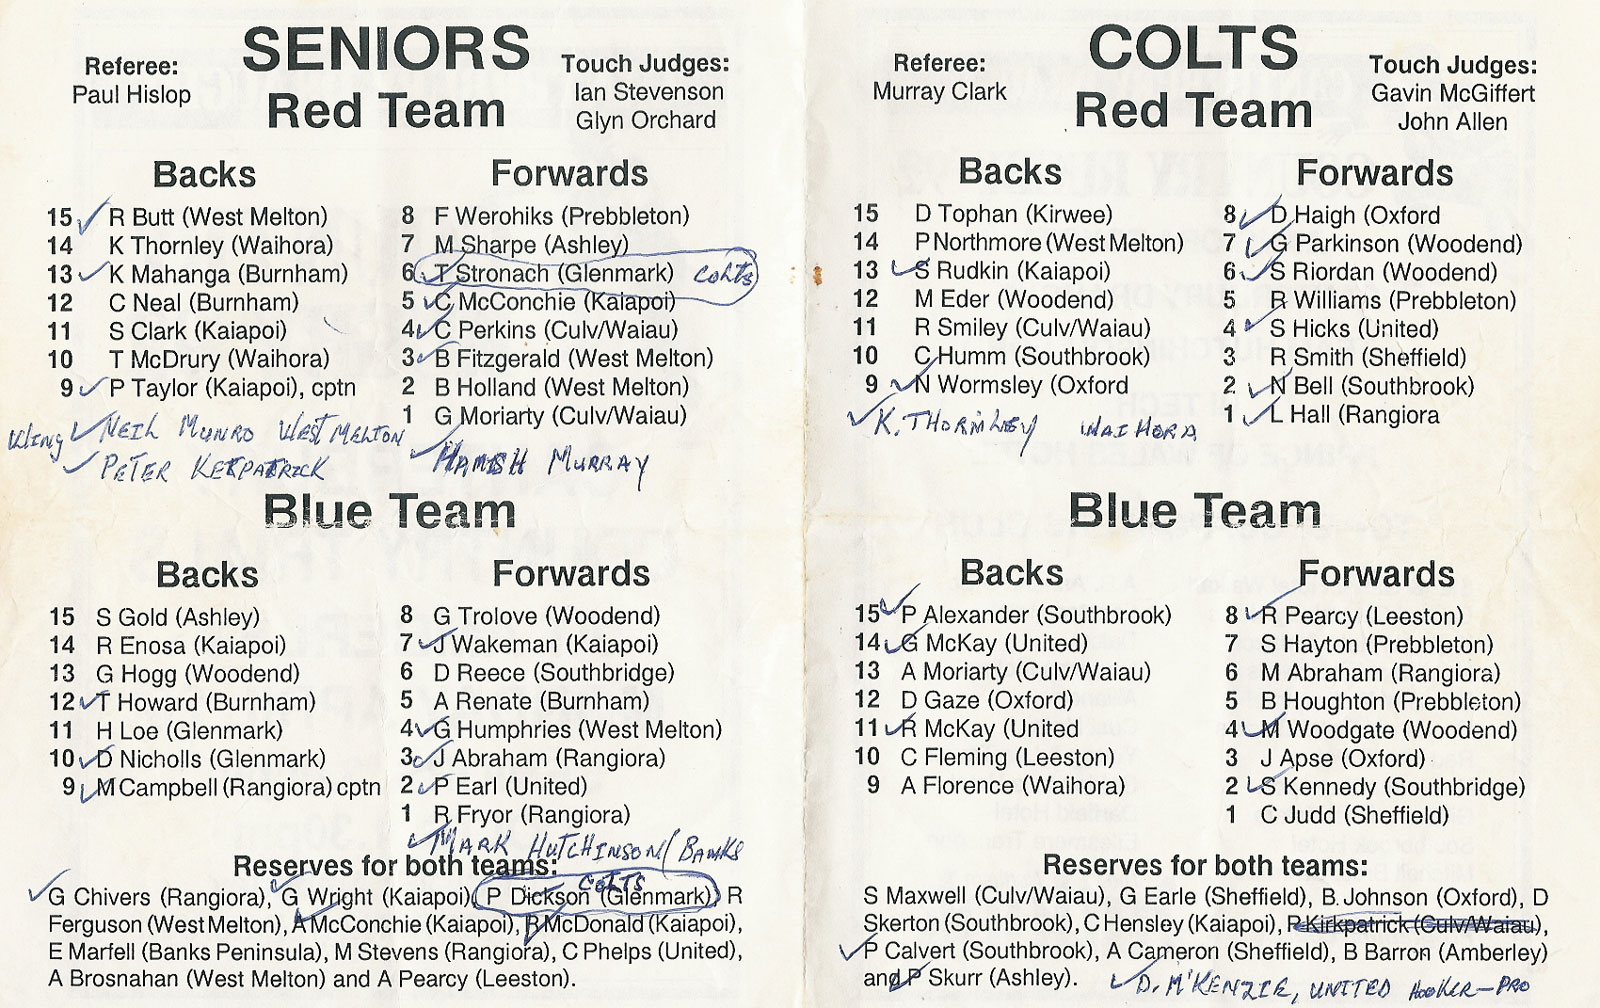 SENIORS
Referee:
Paul Hislop
Touch Judges:
Ian Stevenson
Glyn Orchard
Red Team
Backs
15 R Butt (West Melton)
14 K Thornley (Waihora)
13 K Mahanga (Burnham)
12 C Neal (Burnham)
11 S Clark (Kaiapoi)
10 T McDrury (Waihora)
9 P Taylor (Kaiapoi), cptn
Wing NEIL MUNRO WEST MELTON
PETER KERPATRICK
Forwards
8 F Werohiks (Prebbleton)
7 M Sharpe (Ashley)
6 T Stronach (Glenmark) COLTS
5 C McConchie (Kaiapoi)
4 C Perkins (Culv/Waiau)
3 B Fitzgerald (West Melton)
2 B Holland (West Melton)
1 G Moriarty (Culv/Waiau)
HAMISH MURRAY
Blue Team
Backs
15 S Gold (Ashley)
14 R Enosa (Kaiapoi)
13 G Hogg (Woodend)
12 T Howard (Burnham)
11 H Loe (Glenmark)
10 D Nicholls (Glenmark)
9 M Campbell (Rangiora) cptn
Forwards
8 G Trolove (Woodend)
7 J Wakeman (Kaiapoi)
6 D Reece (Southbridge)
5 A Renate (Burnham)
4 G Humphries (West Melton)
3 J Abraham (Rangiora)
2 P Earl (United)
1 R Fryor (Rangiora)
MARK HUTCHINSON/BANKS
Reserves for both teams:
COLTS
G Chivers (Rangiora), G Wright (Kaiapoi), P Dickson (Glenmark), R
Ferguson (West Melton), A McConchie (Kaiapoi), R McDonald (Kaiapoi),
E Marfell (Banks Peninsula), M Stevens (Rangiora), C Phelps (United),
A Brosnahan (West Melton) and A Pearcy (Leeston).
COLTS
Referee:
Murray Clark
Touch Judges:
Gavin McGiffert
John Allen
Red Team
Backs
15 D Tophan (Kirwee)
14 P Northmore (West Melton)
13 S Rudkin (Kaiapoi)
12 M Eder (Woodend)
11 R Smiley (Culv/Waiau)
10 C Humm (Southbrook)
9 N Wormsley (Oxford
K. THORNLEY WAIHORA
Forwards
8 D Haigh (Oxford
7 G Parkinson (Woodend)
6 S Riordan (Woodend)
5 R Williams (Prebbleton)
4 S Hicks (United)
3 R Smith (Sheffield)
2 N Bell (Southbrook)
1 L Hall (Rangiora
Blue Team
Backs
15 P Alexander (Southbrook)
14 G McKay (United)
13 A Moriarty (Culv/Waiau)
12 D Gaze (Oxford)
11 R McKay (United
10 C Fleming (Leeston)
9 A Florence (Waihora)
Forwards
8 R Pearcy (Leeston)
7 S Hayton (Prebbleton)
6 M Abraham (Rangiora)
5 B Houghton (Prebbleton)
4 M Woodgate (Woodend)
3 J Apse (Oxford)
2 S Kennedy (Southbridge)
1 C Judd (Sheffield)
Reserves for both teams:
S Maxwell (Culv/Waiau), G Earle (Sheffield), B. Johnson (Oxford), D
Skerton (Southbrook), C Hensley (Kaiapoi), P Kirkpatrick (Culv/Waiau),
P Calvert (Southbrook), A Cameron (Sheffield), B Barron (Amberley)
and P Skurr (Ashley).
D. M'KENZIE, UNITED HOOKER-PRO